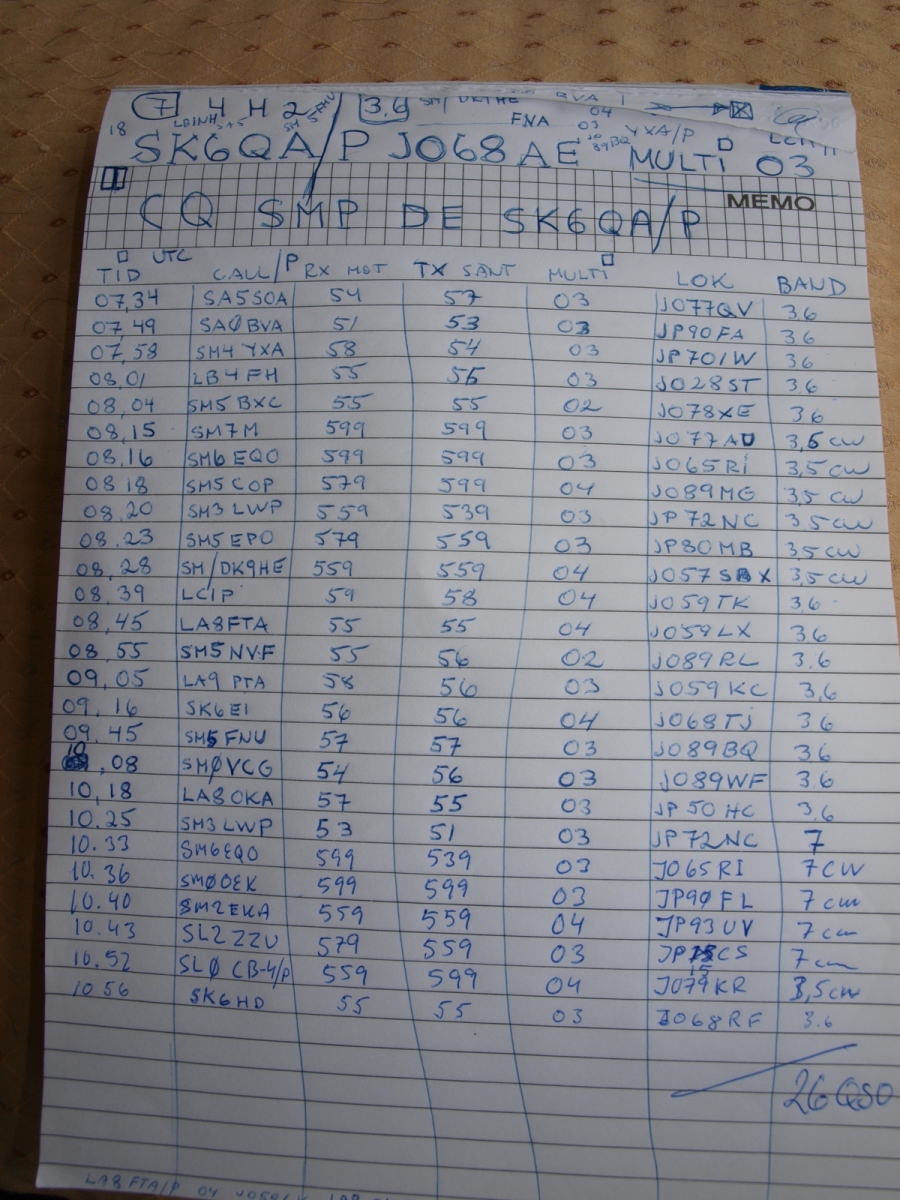 7 4 H 2 3.6 SM/DK9HE BVA
LB1NH FNA 04
18 03 YXA/P
SK6QA/P JO68AE MULTI 03
MEMO
CQ SMP DE SK6QA/P
TID UTC CALL/P RX MOT TX SÄNT MULTI LOK BAND
07,34 SA5SOA 54 57 03 JO77QV 3.6
07,49 SA0BVA 51 53 03 JP90FA 3.6
07,58 SM4YXA 58 54 03 JP70IW 3.6
08,01 LB4FH 55 55 03 JO28ST 3.6
08,04 SM5BXC 55 55 02 JO78XE 3.6
08,15 SM7M 599 599 03 JO77AU 3,5 CW
08,16 SM6EQO 599 599 03 JO65RI 3,5 CW
08 18 SM5COP 579 599 04 JO89MG 3,5 CW
08,20 SM3LWP 559 539 03 JP72NC 3,5 CW
08.23 SM5EPO 579 559 03 JP80MB 3,5 CW
08,28 SM/DK9HE 559 559 04 JO57SX 3,5 CW
08,39 LC1P 59 58 04 JO59TK 3.6
08,45 LA8FTA 55 55 04 JO59LX 3.6
08 55 SM5NVF 55 56 02 JO89RL 3.6
09,05 LA9PTA 58 56 03 JO59KC 3.6
09,16 SK6EI 56 56 04 JO68TJ 3.6
09.45 SM5FNU 57 57 03 JO89BQ 3.6
10,08 SMØVCG 54 56 03 JO89WF 3.6
10,18 LA8OKA 57 55 03 JP50HC 3.6
10.25 SM3LWP 53 51 03 JP72NC 7
10.33 SM6EQO 599 539 03 JO65RI 7 CW
10.36 SM0OEK 599 599 03 JP90FL 7 cw
10.40 SM2EKA 559 559 04 JP93UV 7 cw
10.43 SL2ZZU 579 559 03 JP15CS 7 cw
10.52 SLØCB-4/P 559 599 04 JO79KR 3,5 CW
10 56 SK6HD 55 55 03 JO68RF 3.6
26 QSO
LA8FTA/P 04